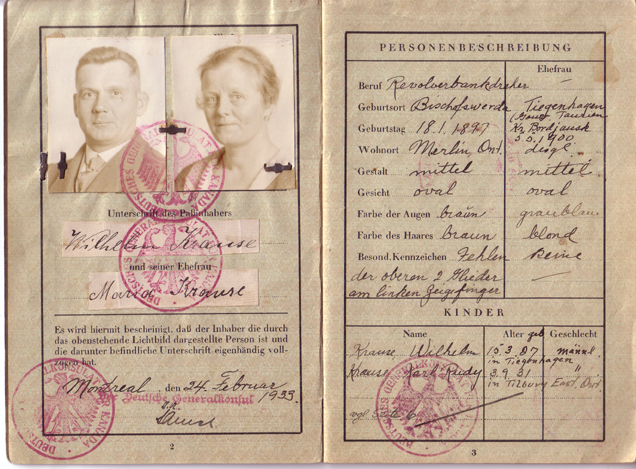 Unterschrift des Paßinhabers
Wilhelm Krause
und seiner Ehefrau
Maria Krause
Es wird hiermit bescheinigt, daß der Inhaber die durch
das obenstehende Lichtbild dargestellte Person ist und
die darunter befindliche Unterschrift eigenhändig voll-
zogen hat.
Montreal, den 24. Februar 1933
Der Deutsche Generalkonsul
2
PERSONENBESCHREIBUNG
Ehefrau
Beruf Revolverbankdreher
Geburtsort Bischofswerda Tiegenhagen
Geburtstag 18.1. 1900
Wohnort Merlin Ont. dsgl.
Gestalt mittel mittel
Gesicht oval oval
Farbe der Augen braun graublau
Farbe des Haares braun blond
Besond. Kennzeichen Fehlen keine
der oberen 2 Glieder
am linken Zeigefinger
KINDER
Name Alter geb. Geschlecht
Krause Wilhelm 15.3.27 männl.
in Tiegenhagen
Krause Karl Rudy 3.9.31 "
in Tilbury East, Ont
vgl. Seite 6
3